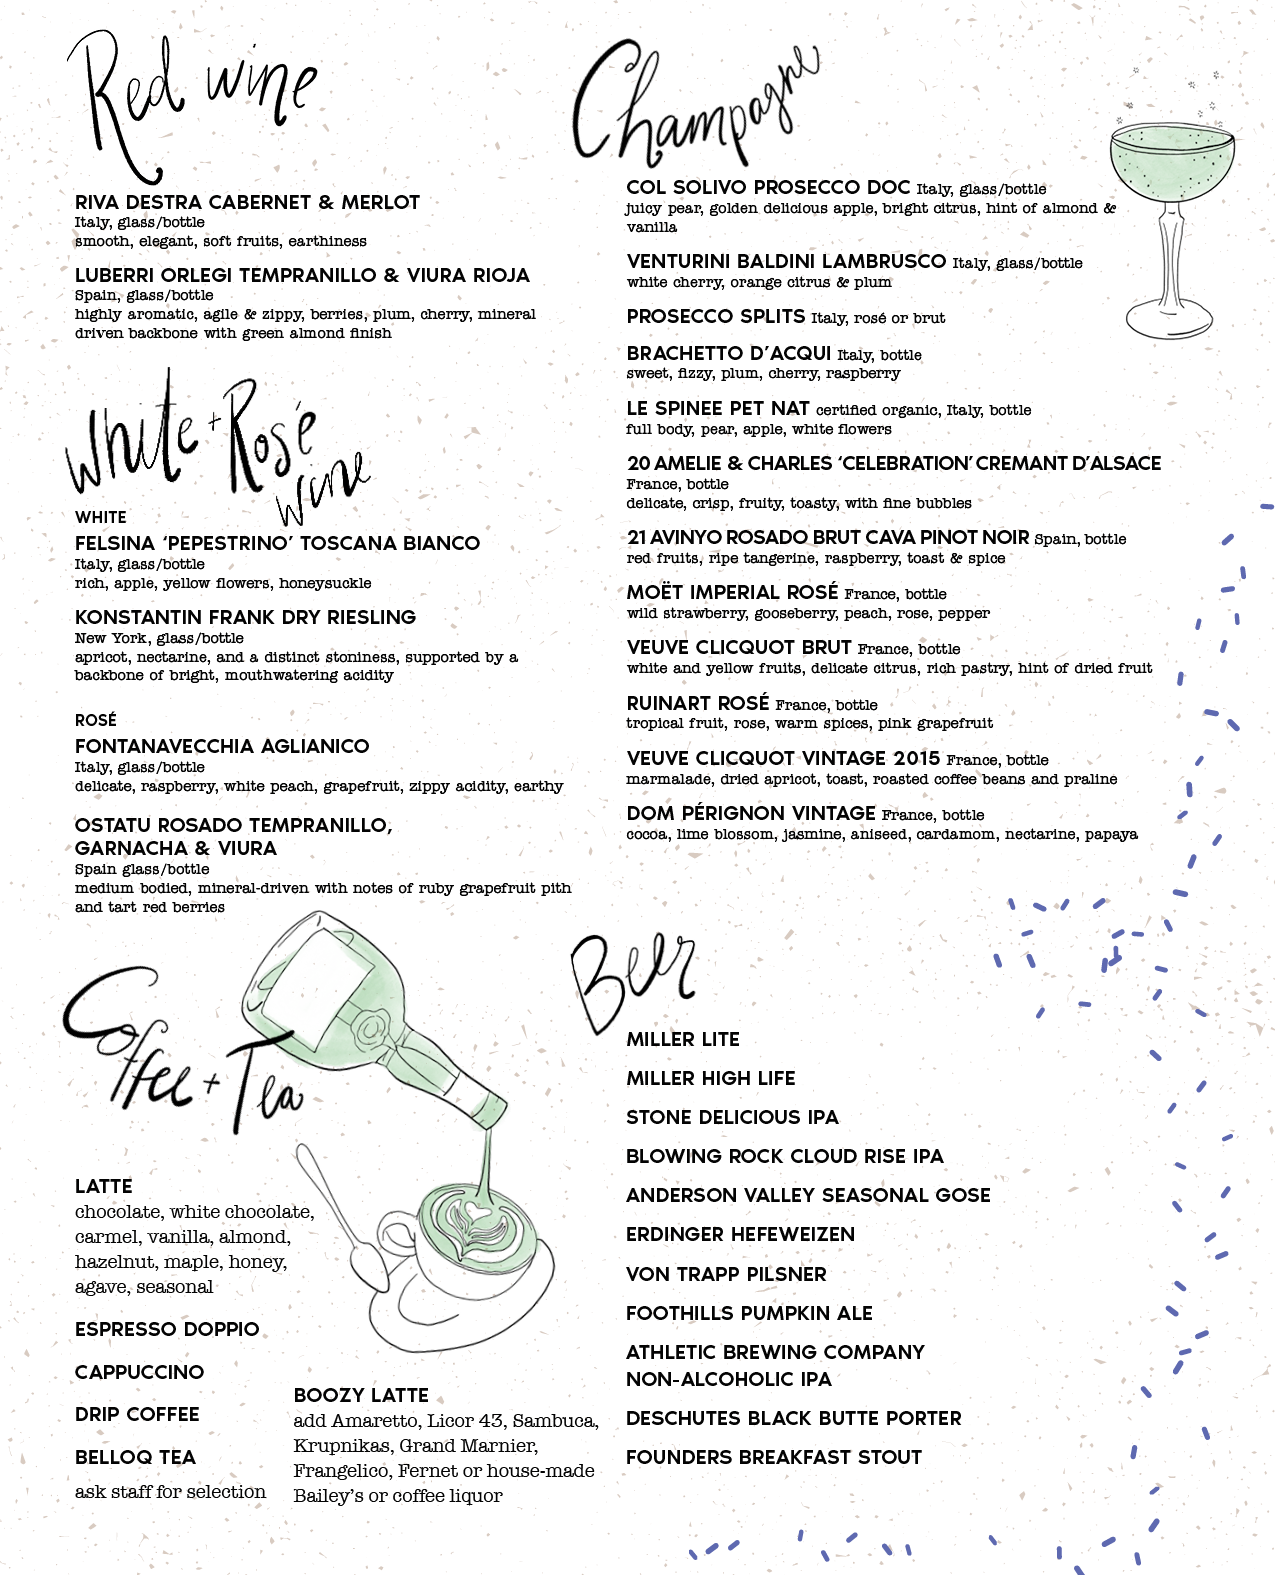 Red wine
RIVA DESTRA CABERNET & MERLOT
Italy, glass/bottle
smooth, elegant, soft fruits, earthiness
LUBERRI ORLEGI TEMPRANILLO & VIURA RIOJA
Spain, glass/bottle
highly aromatic, agile & zippy, berries, plum, cherry, mineral
driven backbone with green almond finish
White + Rosé
wine
WHITE
FELSINA ‘PEPESTRINO’ TOSCANA BIANCO
Italy, glass/bottle
rich, apple, yellow flowers, honeysuckle
KONSTANTIN FRANK DRY RIESLING
New York, glass/bottle
apricot, nectarine, and a distinct stoniness, supported by a
backbone of bright, mouthwatering acidity
ROSÉ
FONTANAVECCHIA AGLIANICO
Italy, glass/bottle
delicate, raspberry, white peach, grapefruit, zippy acidity, earthy
OSTATU ROSADO TEMPRANILLO,
GARNACHA & VIURA
Spain glass/bottle
medium bodied, mineral-driven with notes of ruby grapefruit pith
and tart red berries
Champagne
COL SOLIVO PROSECCO DOC Italy, glass/bottle
juicy pear, golden delicious apple, bright citrus, hint of almond &
vanilla
VENTURINI BALDINI LAMBRUSCO Italy, glass/bottle
white cherry, orange citrus & plum
PROSECCO SPLITS Italy, rosé or brut
BRACHETTO D’ACQUI Italy, bottle
sweet, fizzy, plum, cherry, raspberry
LE SPINEE PET NAT certified organic, Italy, bottle
full body, pear, apple, white flowers
20 AMELIE & CHARLES ‘CELEBRATION’ CREMANT D’ALSACE
France, bottle
delicate, crisp, fruity, toasty, with fine bubbles
21 AVINYO ROSADO BRUT CAVA PINOT NOIR Spain, bottle
red fruits, ripe tangerine, raspberry, toast & spice
MOËT IMPERIAL ROSÉ France, bottle
wild strawberry, gooseberry, peach, rose, pepper
VEUVE CLICQUOT BRUT France, bottle
white and yellow fruits, delicate citrus, rich pastry, hint of dried fruit
RUINART ROSÉ France, bottle
tropical fruit, rose, warm spices, pink grapefruit
VEUVE CLICQUOT VINTAGE 2015 France, bottle
marmalade, dried apricot, toast, roasted coffee beans and praline
DOM PÉRIGNON VINTAGE France, bottle
cocoa, lime blossom, jasmine, aniseed, cardamom, nectarine, papaya
Coffee + Tea
LATTE
chocolate, white chocolate,
carmel, vanilla, almond,
hazelnut, maple, honey,
agave, seasonal
ESPRESSO DOPPIO
CAPPUCCINO
DRIP COFFEE
BELLOQ TEA
ask staff for selection
BOOZY LATTE
add Amaretto, Licor 43, Sambuca,
Krupnikas, Grand Marnier,
Frangelico, Fernet or house-made
Bailey’s or coffee liquor
Beer
MILLER LITE
MILLER HIGH LIFE
STONE DELICIOUS IPA
BLOWING ROCK CLOUD RISE IPA
ANDERSON VALLEY SEASONAL GOSE
ERDINGER HEFEWEIZEN
VON TRAPP PILSNER
FOOTHILLS PUMPKIN ALE
ATHLETIC BREWING COMPANY
NON-ALCOHOLIC IPA
DESCHUTES BLACK BUTTE PORTER
FOUNDERS BREAKFAST STOUT